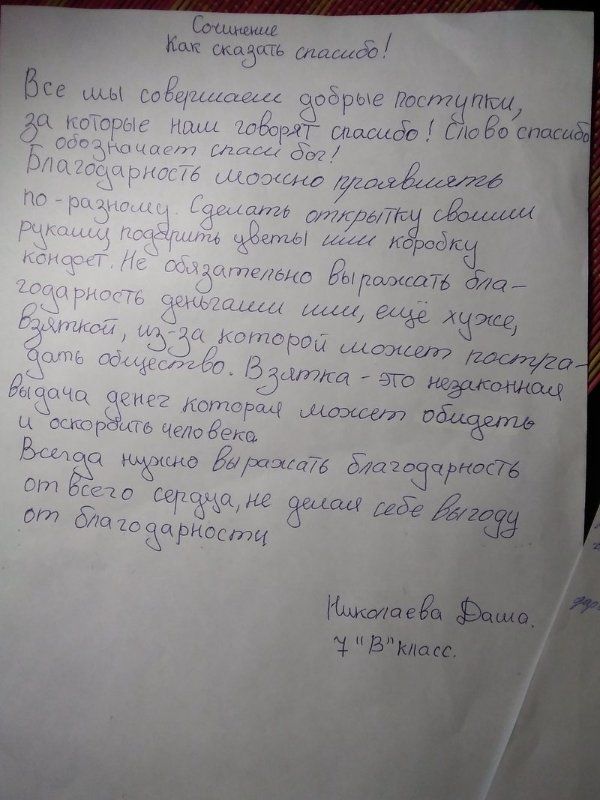 Сочинение
Как сказать спасибо!
Все мы совершаем добрые поступки,
за которые нам говорят спасибо! Слово спасибо
обозначает спаси бог!
Благодарность можно проявлять
по-разному. Сделать открытку своими
руками, подарить цветы или коробку
конфет. Не обязательно выражать бла-
годарность деньгами или, ещё хуже,
взяткой, из-за которой может постра-
дать общество. Взятка - это незаконная
выдача денег которая может обидеть
и оскорбить человека.
Всегда нужно выражать благодарность
от всего сердца, не делая себе выгоду
от благодарности
Николаева Даша.
7 "В" класс.